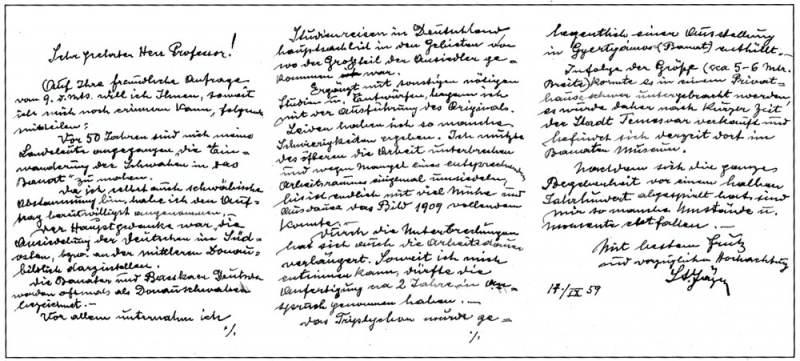 Sehr geehrter Herr Professor!
Auf Ihre freundliche Anfrage
vom 9. d. Mts. will ich Ihnen, soweit
ich mich noch erinnern kann, folgendes
mitteilen:
Vor 50 Jahren sind mich meine
Landsleute angegangen die "Ein-
wanderung der Schwaben in das
Banat" zu malen.
Da ich selbst auch schwäbischer
Abstammung bin, habe ich den Auf-
trag bereitwilligst angenommen.
Der Hauptgedanke war, die
Ansiedelung der Deutschen im Süd-
osten, bzw. an der mittleren Donau
bildlich darzustellen.
Die Banater und Batschkaer Deutschen
werden oftmals als Donauschwaben
bezeichnet.—
Vor allem unternahm ich
%.
Studienreisen in Deutschland
hauptsächlich in den Gebieten von
wo der Großteil der Ansiedler ge-
kommen war.
Ergänzt mit sonstigen nötigen
Studien u. Entwürfen, begann ich
mit der Ausführung des Originals.
Leider haben sich so manche
Schwierigkeiten ergeben. Ich mußte
des öfteren die Arbeit unterbrechen
und wegen Mangel eines entsprechenden
Arbeitsraumes einigemal umsiedeln,
bis ich endlich mit viel Mühe und
Ausdauer das Bild 1909 vollenden
konnte.—
Durch die Unterbrechungen
hat sich auch die Arbeitsdauer
verlängert. Soweit ich mich
entsinnen kann, dürfte die
Anfertigung ca 2 Jahre in An-
spruch genommen haben.—
Das Triptychon wurde ge-
%.
legentlich einer Ausstellung
in Gyertyámos (Banat) enthüllt.—
Infolge der Größe (ca 5-6 Mtr.
Breite) konnte es in einem Privat-
hause schwer untergebracht werden,
es wurde daher nach kurzer Zeit
der Stadt Temesvar verkauft und
befindet sich derzeit dort im
Banater Museum.
Nachdem sich die ganze
Begebenheit vor einem halben
Jahrhundert abgespielt hat, sind
mir so manche Umstände u.
Momente entfallen.—
Mit bestem Gruß
und vorzüglicher Hochachtung
St. Jäger
17/IX 59